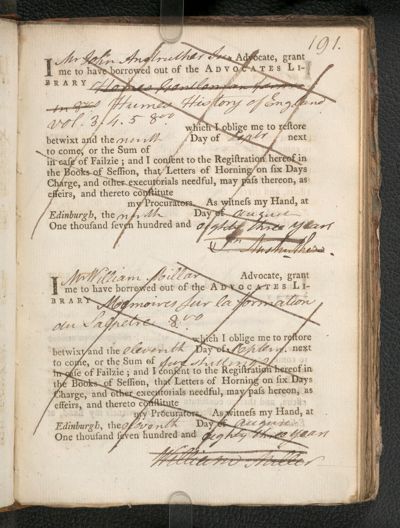 191.
I Mr John Anstruther Advocate, grant
me to have borrowed out of the ADVOCATES LI-
BRARY
in 8vo Humes History of England
vol. 3. 4. 5 8vo
which I oblige me to restore
betwixt and the ninth Day of Septr next
to come, or the Sum of
in case of Failzie; and I consent to the Registration hereof in
the Books of Session, that Letters of Horning on six Days
Charge, and other executorials needful, may pass thereon, as
effeirs, and thereto constitute
my Procurators. As witness my Hand, at
Edinburgh, the ninth Day of august
One thousand seven hundred and eighty three years
Jn Anstruther
I Mr William Millar Advocate, grant
me to have borrowed out of the ADVOCATES LI-
BRARY Memoires sur la formation
du Salpetre 8vo
which I oblige me to restore
betwixt and the eleventh Day of Septem. next
to come, or the Sum of
in case of Failzie; and I consent to the Registration hereof in
the Books of Session, that Letters of Horning on six Days
Charge, and other executorials needful, may pass hereon, as
effeirs, and thereto constitute
my Procurators. As witness my Hand, at
Edinburgh, the eleventh Day of august
One thousand seven hundred and eighty three years
William Miller